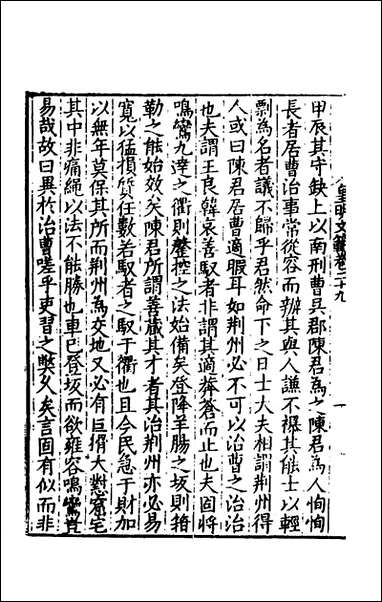 甲辰其守缺上以南刑曹吳郡陳君為之陳君為人恂恂
長者居曹治事常從容而辦其與人謙不襮其能士以輕
剽為名者議不歸乎君然命下之日士大夫相謂荆州得
人或曰陳君居曹適暇耳如荆州必不可以治曹之治治
也夫謂王良韓哀善馭者非謂其適莽蒼而止也夫固將
鳴鸞九逵之衢則罄控之法始備矣登降羊腸之坂則箝
勒之能始效矣陳君所謂善蔵其才者其治荆州亦必易
寬以猛損質任數若馭者之馭于衢也且今民急于財加
以無年莫保其所而荆州為交地又必有巨猾大憝窟宅
其中非痛繩以法不能勝也車已登坂而欲雍容鳴鸞豈
易哉故曰異於治曹嗟乎吏習之獘久矣言固有似而非
皇明文範卷二十九
一